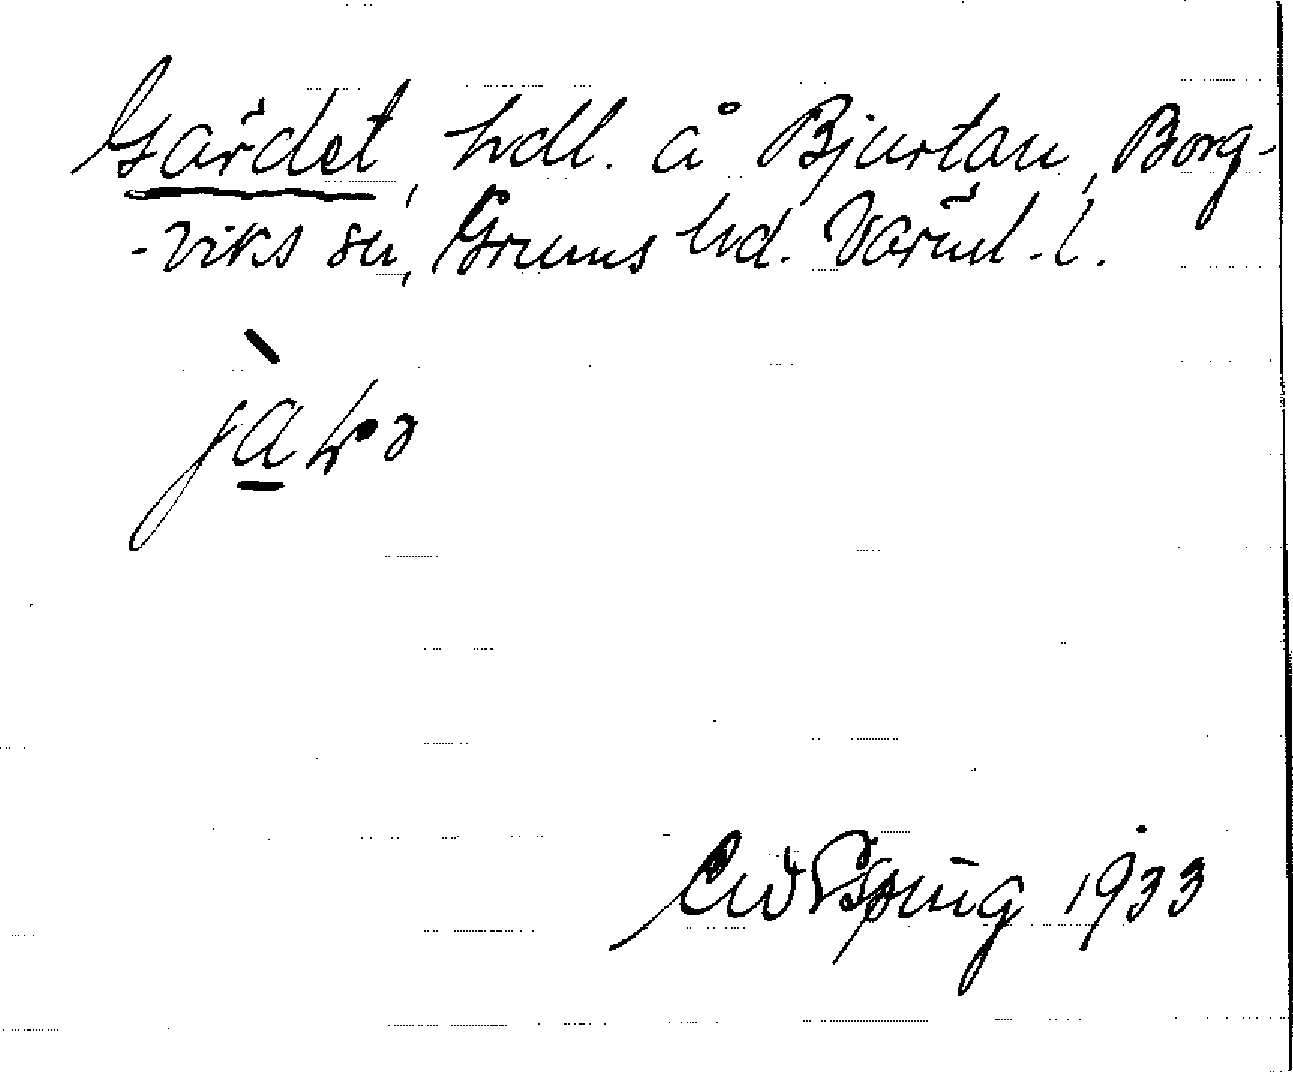 Gärdet, hdl. å Bjurtan, Borg-
-viks sn, Grums hd. Värml. l.
1933